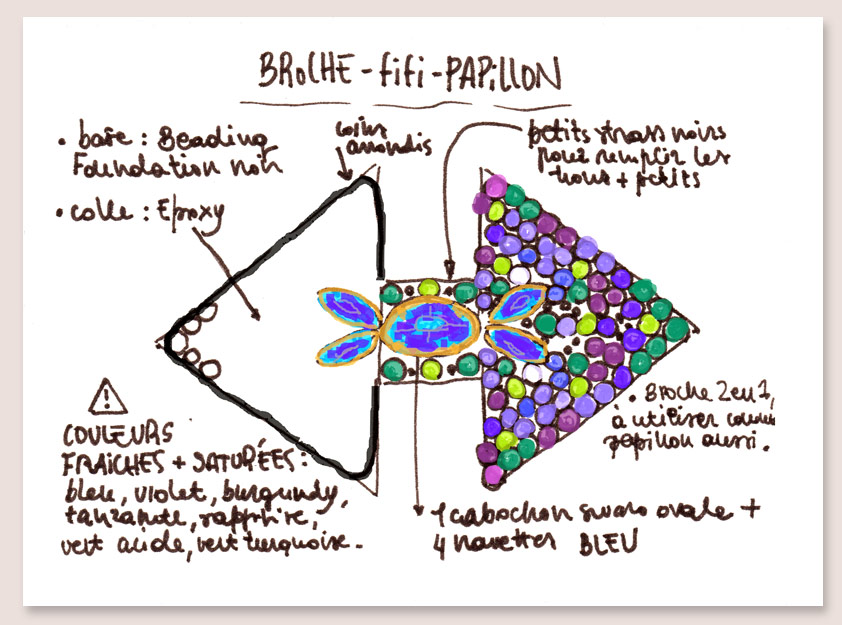 BROCHE-fifi-PAPiLLON
• base : Beading
Foundation noir
• colle : Epoxy
coins
arrondis
petits strass noirs
pour remplir les
trous + petits
COULEURS
FRAîCHES + SATURÉES :
bleu, violet, burgundy,
tanzanite, sapphire,
vert acide, vert turquoise.
• Broche 2 en 1,
à utiliser comme
papillon aussi.
1 cabochon swaro ovale +
4 navettes BLEU